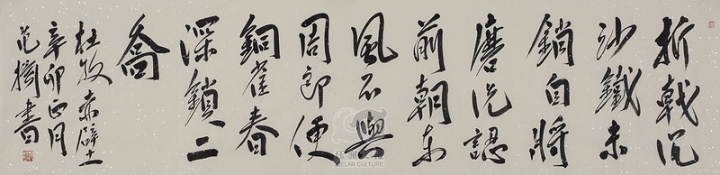 折戟沉
沙鐵未
銷自將
磨洗認
前朝東
風不與
周郎便
銅雀春
深鎖二
喬
杜牧赤壁
辛卯正月
范書
CULTURE